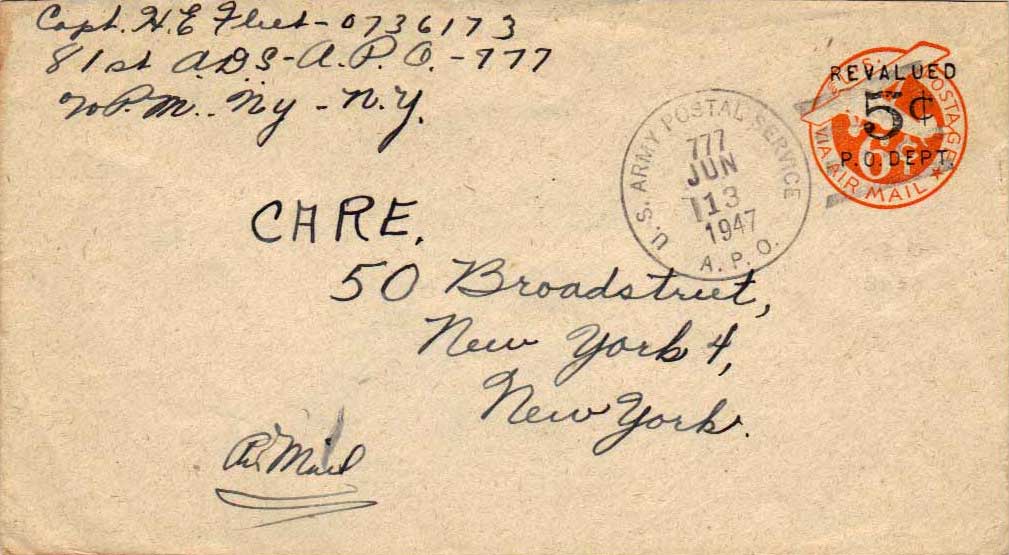 Capt. H. E. Fleet - 0736173
81st A.D.S - A.P.O. - 777
℅ P.M. Ny - N.Y.
REVALUED
5¢
P.O. DEPT.
POSTAGE
6¢
VIA AIR MAIL
U.S. ARMY POSTAL SERVICE
777
JUN
13
1947
A.P.O.
CARE.
50 Broadstreet,
New York 4,
New York.
Air Mail